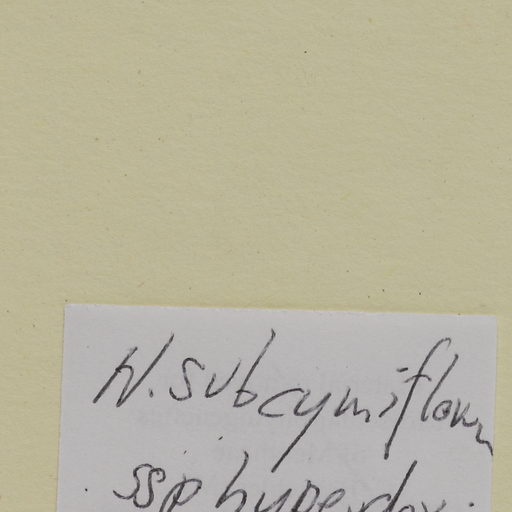 H. subcymiflorum
ssp hyperdoxum